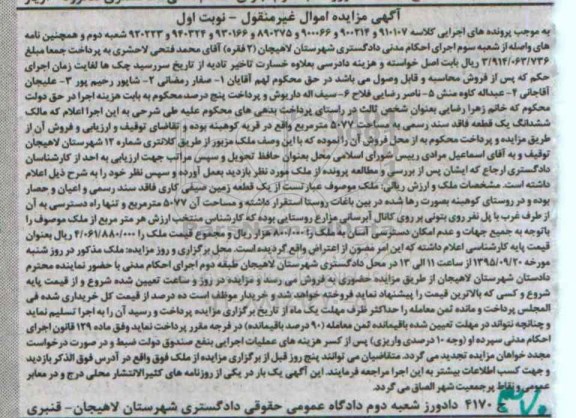 آگهی مزایده اموال غیرمنقول - نوبت اول
به موجب پرونده های اجرایی کلاسه ۹۱۰۱۰۷ و ۹۰۰۲۱۴ و ۹۰۰۰۶۶ و ۸۹۰۲۷۵ و ۹۳۰۱۶۶ و ۹۴۰۳۲۴ و ۹۲۰۲۳۳ شعبه دوم و همچنین نامه
های واصله از شعبه سوم اجرای احکام مدنی دادگستری شهرستان لاهیجان (۲ فقره) آقای محمد فتحی لاحشری به پرداخت جمعا مبلغ
۳/۹۱۴/۰۶۳/۷۳۶ ریال بابت اصل خواسته و هزینه دادرسی بعلاوه خسارت تاخیر تادیه از تاریخ سررسید چک ها لغایت زمان اجرای
حکم که پس از فروش محاسبه و قابل وصول می باشد در حق محکوم لهم آقایان ۱- صفار رمضانی ۲- شاپور رحیم پور ۳- علیجان
آقاجانی ۴- عبداله کاوه منش ۵- ناصر رضایی فلاح ۶- سیف اله داریوش و پرداخت پنج درصد محکوم به بابت هزینه اجرا در حق دولت
محکوم که خانم زهرا رضایی بعنوان شخص ثالث در راستای پرداخت بدهی های محکوم علیه طی شرحی به این اجرا اعلام که مالک
ششدانگ یک قطعه فاقد سند رسمی به مساحت ۵۰۷۷ مترمربع واقع در قریه کوهبنه بوده و تقاضای توقیف و ارزیابی و فروش آن از
طریق مزایده و پرداخت محکوم به از محل فروش آن را نموده که با این وصف ملک مزبور از طریق کلانتری شماره ۱۲ شهرستان لاهیجان
توقیف و به آقای اسماعیل مرادی رییس شورای اسلامی محل بعنوان حافظ تحویل و سپس مراتب جهت ارزیابی به احد از کارشناسان
دادگستری ارجاع که ایشان پس از بررسی و مطالعه پرونده از ملک مورد نظر بازدید بعمل آورده و سپس نظر خود را به شرح ذیل اعلام
داشته است. مشخصات ملک و ارزش ریالی: ملک موصوف عبارتست از یک قطعه زمین صیفی کاری فاقد سند رسمی و اعیان و حصار
بوده و در روستای کوهبنه بصورت رها شده در بین باغات روستا استقرار داشته و مساحت آن ۵۰۷۷ مترمربع و تنها راه دسترسی به آن
از طرف غرب با پل نفر روی بتونی بر روی کانال آبرسانی مزارع روستایی بوده که کارشناس منتخب ارزش هر متر مربع از ملک موصوف را
باتوجه به جمیع جهات و عدم امکان دسترسی آسان به ملک را ۸۰۰/۰۰۰ هزار ریال و مجموع قیمت ملک را ۴/۰۶۱/۸۸۰/۰۰۰ ریال بعنوان
قیمت پایه کارشناسی اعلام داشته که این امر مصون از اعتراض واقع گردیده است. محل برگزاری و روز مزایده: ملک مذکور در روز شنبه
مورخه ۱۳۹۵/۰۹/۲۰ از ساعت ۱۱ الی ۱۳ در محل دادگستری شهرستان لاهیجان طبقه دوم اجرای احکام مدنی با حضور نماینده محترم
دادستان شهرستان لاهیجان از طریق مزایده حضوری به فروش می رسد و مزایده در روز و ساعت تعیین شده شروع و از قیمت پایه
شروع و کسی که بالاترین قیمت را پیشنهاد نماید فروخته خواهد شد و خریدار موظف است ده درصد از قیمت کل خریداری شده فی
المجلس پرداخت و مانده ثمن معامله را حداکثر ظرف مهلت یک ماه از تاریخ برگزاری مزایده پرداخت و رسید آن را به اجرا تسلیم نماید
و چنانچه نتواند در مهلت تعیین شده باقیمانده ثمن معامله (۹۰ درصد باقیمانده) در فرجه مقرر پرداخت نماید وفق ماده ۱۲۹ قانون اجرای
احکام مدنی سپرده او (وجه ۱۰ درصدی واریزی) پس از کسر هزینه های عملیات اجرایی بنفع صندوق دولت ضبط و در صورت درخواست
مجدد خواهان مزایده تجدید می گردد. متقاضیان می توانند پنج روز قبل از برگزاری مزایده از ملک فوق واقع در آدرس فوق الذکر بازدید
و جهت کسب اطلاعات بیشتر به این اجرا مراجعه فرمایند. این آگهی یک بار در یکی از روزنامه های کثیرالانتشار محلی درج و در معابر
عمومی و نقاط پرجمعیت شهر الصاق می گردد.
۴۱۷۰ دادورز شعبه دوم دادگاه عمومی حقوقی دادگستری شهرستان لاهیجان- قنبری